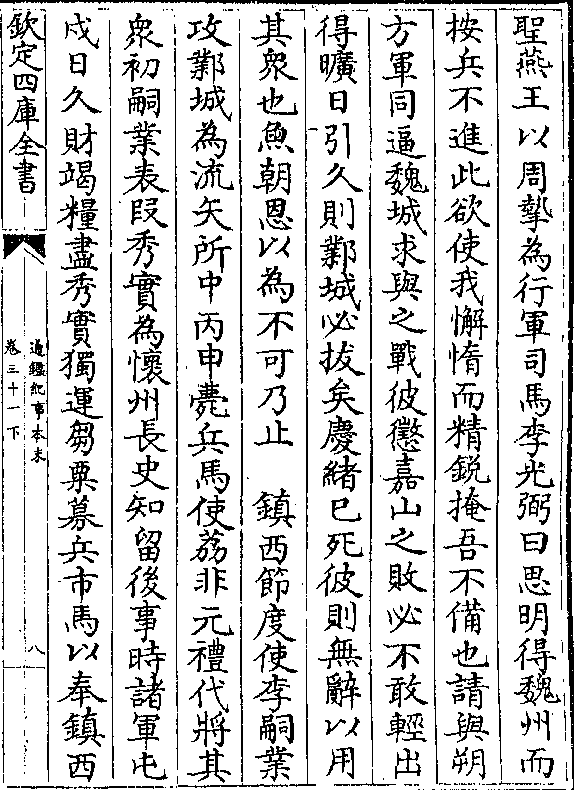 聖燕王以周摯為行軍司馬李光弼曰思明得魏州而
按兵不進此欲使我懈惰而精銳掩吾不備也請與朔
方軍同逼魏城求與之戰彼懲嘉山之敗必不敢輕出
得曠日引久則鄴城必拔矣慶緒已死彼則無辭以用
其衆也魚朝恩以為不可乃止　鎮西節度使李嗣業
攻鄴城為流矢所中丙申薨兵馬使荔非元禮代將其
衆初嗣業表段秀實為懷州長史知留後事時諸軍屯
戍日久財竭糧盡秀實獨運芻粟募兵市馬以奉鎮西
欽定四庫全書
通鑑紀事本末
卷三十一下
八